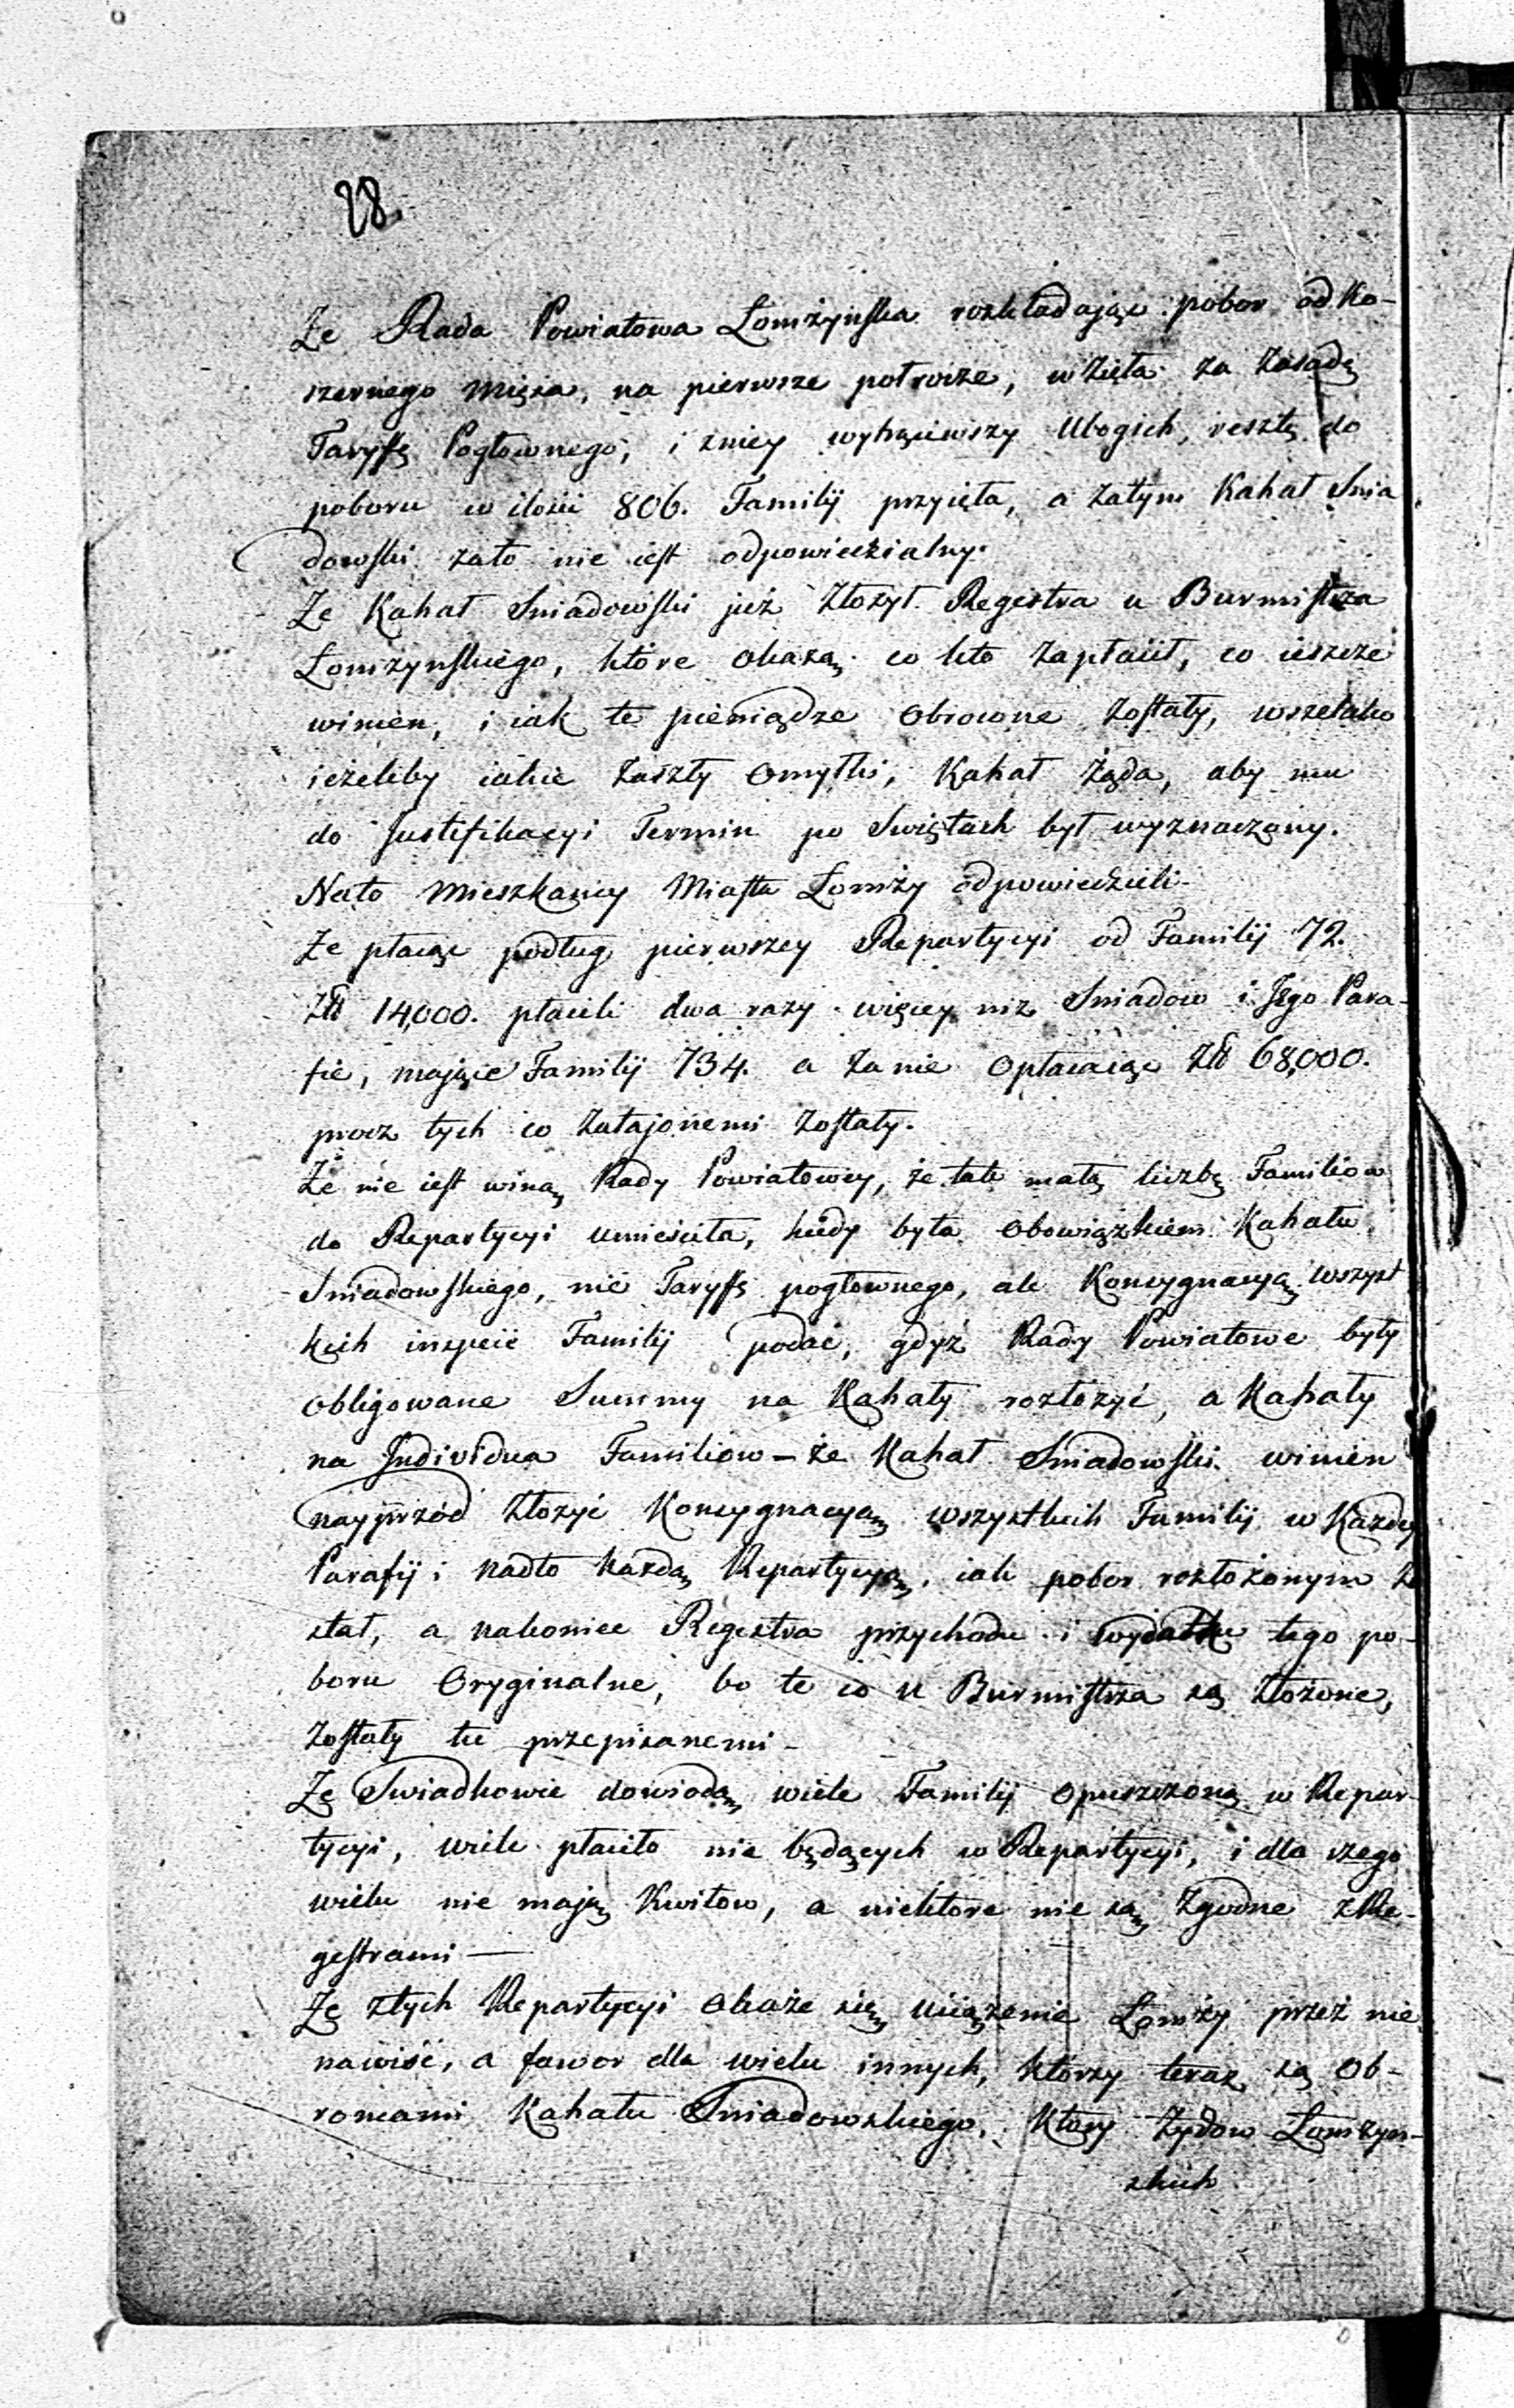 28.
Ze Rada Powiatowa Łomżynska rozkładaiąc pobor od ko-
szernego mięsa, na pierwsze połrocze, wzięła za zasadę
Taryffę Pogłownego, i zniey wytrąciwszy Ubogich, resztę do
poboru w ilości 806. Familij przyięła, a zatym Kahał Snia
dowski zato nie iest odpowiedzialny.
Ze Kahał Sniadowski już złożył Regestra u Burmistrza
Łomżynskiego, które okażą co kto zapłacił, co ieszcze
winien, i iak te pieniądze obrocone zostały, wszelako
ieżeliby iakie zaszły omyłki, Kahał żąda, aby mu
do Justifikacyi Termin po Swiętach był wyznaczony.
Nato Mieszkańcy Miasta Łomży odpowiedzieli-
Ze płacąc podług pierwszey Repartycyi od Familij 72.
Złł 14,000. płacili dwa razy więcey niż Sniadow i Jego Para-
fie, maiące Familij 734. a za nie opłacaiąc Złł 68,000.
procz tych co zatajonemi zostały.
Ze nie iest winą Rady Powiatowey, że tak małą liczbę Familiow
do Repartycyi umieściła, kiedy była obowiązkiem Kahału
Sniadowskiego, nie Taryffę pogłownego, ale Konsygnacyą wszyst
kich in specie Familij podać, gdyż Rady Powiatowe były
obligowane Summy na Kahały rozłożyć, a Kahały
na Individua Familiow – że Kahał Sniadowski winien
nayprzód złożyć Konsygnacyą wszystkich Familij w Każdey
Parafij i nadto każdą Repartycyą, iak pobor rozłożonym zo
stał, a nakoniec Regestra przychodu i wydatku tego po-
boru Oryginalne, bo te co u Burmistrza są złożone,
zostały tu przepisanemi –
Ze Swiadkowie dowiodą, wiele Familij opuszczoną w Repar-
tycyi, wiele płaciło nie będących w Repartycyi, i dla czego
wielu nie maią Kwitow, a niektore nie są zgodne z Re-
gestrami —
Ze ztych Repartycyi okaże się uciążenie Łomży przez nie
nawiść, a fawor dla wielu innych, którzy teraz są ob-
roncami Kahału Sniadowskiego, Ktory Żydow Łomżyn-
skich